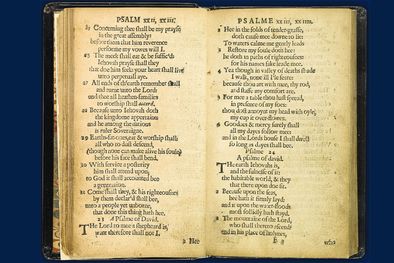 PSALM xxii, xxiii.
25 Concerning thee shall be my prayse
in the great assembly:
before them that him reverence
performe my vowes will I.
26 The meek shall eat & be suffic'd:
Jehovah prayse shall they
that doe him seek: your heart shall live
unto perpetual aye.
27 All ends of th'earth remember shall
and turne unto the Lord:
and thee all heathen-families
to worship shall accord.
28 Because unto Jehovah doth
the kingdome appertaine:
and he among the nations
is ruler Soveraigne.
29 Earths-fat-ones, eat & worship shall:
all who to dust descend,
(though none can make alive his soule)
before his face shall bend.
30 With service a posterity
him shall attend upon;
to God it shall accounted bee
a generation.
31 Come shall they, & his righteousnes
by them declar'd shall bee,
unto a people yet unborne,
that done this thing hath hee.
23 A Psalme of David.
The Lord to mee a shepheard is,
want therefore shall not I.
2 Hee
PSALME xxiii, xxiiii.
2 Hee in the folds of tender-grasse,
doth cause mee downe to lie:
To waters calme me gently leads
3 Restore my soule doth hee:
he doth in paths of righteousnes:
for his names sake leade mee.
4 Yea though in valley of deaths shade
I walk, none ill I'le feare:
because thou art with mee, thy rod,
and staffe my comfort are.
5 For mee a table thou hast spread,
in presence of my foes:
thou dost annoynt my head with oyle,
my cup it over-flowes.
6 Goodnes & mercy surely shall
all my dayes follow mee:
and in the Lords house I shall dwell
so long as dayes shall bee.
Psalme 24
A psalme of david.
The earth Iehovahs is,
and the fulnesse of it:
the habitable world, & they
that there upon doe sit.
2 Because upon the seas,
hee hath it firmly layd:
and it upon the water-floods
most sollidly hath stayd.
3 The mountaine of the Lord,
who shall thereto ascend?
and in his place of holynes,